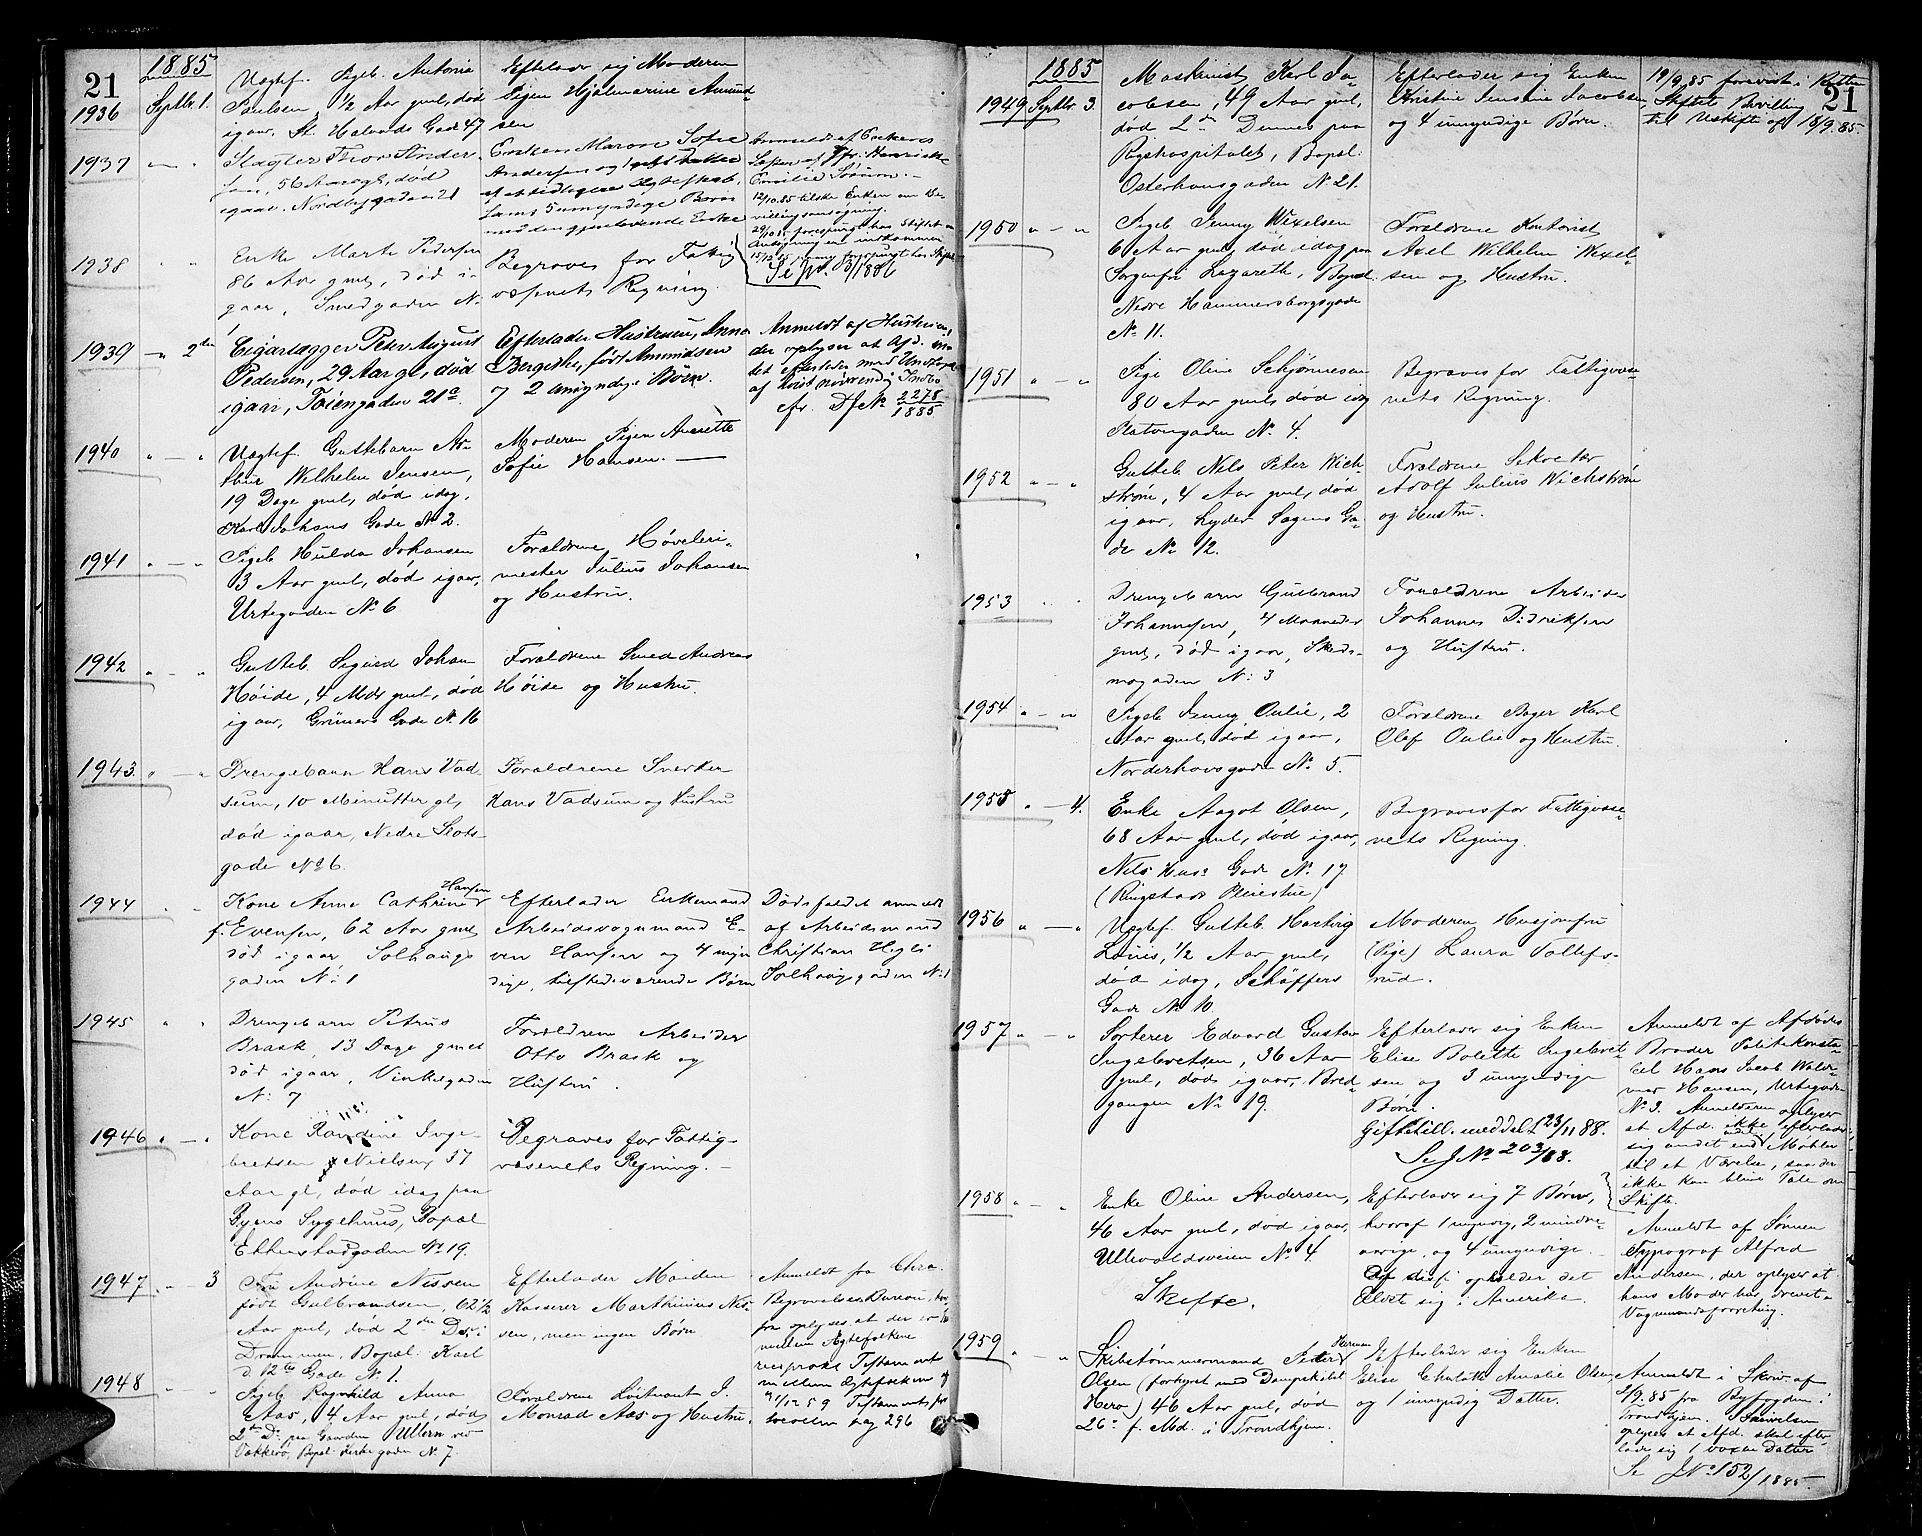 21
1885
1936 Septbr. 1. Uægtef. Pigeb. Antonia
Paulsen, 1/2 Aar gml, død
igaar, St. Halvards Gade 47
Efterlader sig Moderen
Pigen Hjalmarine Amund-
sen
1937 " — "
Slagter Thor Ander-
sen, 56 Aar gl, død
igaar. Nordbygaden 21
Enken Maren Sofie
Andersen og
af tidligere Ægteskab,
samt 5 umyndige Børn
med den gjenlevende Enke
Anmeldt af Enkens
Søster
Emilie
12/10.85 tilsk. Enken om Be-
villingsansøgning.
Se J.N. 3/1886
1938 " "
Enke Marte Pedersen
86 Aar gml, død i-
gaar, Smedgaden N.
Begraves for Fattig
væsnets Regning.
1939 — " 2den
Cigarlægger Peter August
Pedersen, 29 Aar gl, død
igaar, Tøiengaden 21a
Efterlader Hustruen, Anna
Bergithe, født Amundsen
og 2 umyndige Børn.
Anmeldt af Hustruen,
der oplyser at Afd. in-
tet efterlader med Undtagelse
af høist nødvendig Indbo
cfr. Df No 2278/1885
1940 " — "
Uægtef. Guttebarn Ar-
thur Wilhelm Jensen,
19 Dage gml, død idag,
Karl Johans Gade No 2.
Moderen Pigen Anette
Sofie Hansen. —
1941 " — "
Pigeb Hulda Johansen
3 Aar gml, død igaar,
Urtegaden No 6
Forældrene Høvleri-
mester Julius Johansen
og Hustru.
1942 " — "
Gutteb. Sigurd Johan
Høide, 4 Mdr gml, død
igaar, Grüners Gade No 16
Forældrene Smed Andreas
Høide og Hustru.
1943. " — "
Drengebarn Hans Vad-
sum, 10 Minutter gl,
død igaar, Nedre Slots-
gade No 6.
Forældrene Snerker
Hans Vadsum og Hustru
1944 " "
Kone Anne Cathrine Hansen
f. Evensen, 62 Aar gml
død igaar, Solhaugs
gaden No 1
Efterlader Enkemand
Arbeidsvognmand E-
ven Hansen og 4 myn
dige, tilstedeværende Børn
Dødsfaldet anmeldt
af Arbeidsmand
Christian
Solhaugsgaden No 1
1945 " "
Drengebarn Petrus
Brask, 13 Dage gml
død igaar, Vinkelgaden
No 7
Forældrene Arbeider
Otto Brask og
Hustru.
1946 " — "
Kone Randine Inge-
bretsen f. Nielsen, 57
Aar gl, død idag paa
Byens Sygehus, Bopæl
Ekkerstadgaden No 19.
Begraves for Fattig-
væsenets Regning. —
1947 " — 3
Fru Andrine Nissen
født Gulbrandsen, 62 1/2
Aar gml, død 2den Ds. i
Drammen, Bopæl: Karl
d. 12tes Gade No 1.
Efterlader Manden
Kasserer Marthinius Nis-
sen, men ingen Børn
Anmeldt fra Chra
Begravelses Bureau, hvor-
fra oplyses, at der er
mellem Ægtefolkene
reciprokt Testament
1/12 59 Testaments pro
tocollen pag 296
1948 " "
Pigeb. Ragnhild Anna
Aas, 4 Aar gml, død
2den Ds. paa Gaarden Ullern ved
Vækkerø, Bopæl: Kirkegaden No 7.
Forældrene Løitnant I.
Monrad Aas og Hustru.
21
1885
1949 Septbr. 3.
Maskinist Karl Ja-
cobsen, 49 Aar gml,
død 2den Dennes paa
Rigshospitalet, Bopæl:
Osterhausgaden No 21.
Efterlader sig Enken
Kristine Jensine Jacobsen
og 4 umyndige Børn.
19/9.85 forevist i Retten
Skiftets Bevilling
til Uskifte af 18/9.85
1950 " — "
Pigeb Jenny Wexelsen
6 Aar gml, død idag paa
Sorgenfri Lazareth, Bopæl:
Nedre Hammersborgsgade
No 11.
Forældrene Kontorist
Axel Wilhelm Wexel-
sen og Hustru.
1951 " — "
Pige Oline Schjønnesen
80 Aar gml, død idag
Platousgaden No 4.
Begraves for Fattigvæse-
nets Regning.
1952 " — "
Gutteb. Nils Peter Wich-
strøm, 4 Aar gml, død
igaar, Lyder Sagens Ga-
de No 12.
Forældrene Sekretær
Adolf Julius Wichstrøm
og Hustru.
1953 " "
Drengebarn Gulbrand
Johannesen, 4 Maaneder
gml, død igaar, Skeds-
mogaden No 3
Forældrene Arbeider
Johannes Didriksen
og Hustru.
1954 " — "
Pigeb Jenny Oulie, 2
Aar gml, død igaar,
Norderhovsgade No 5.
Forældrene Bager Karl
Olaf Oulie og Hustru.
1955 " — 4.
Enke Aagot Olsen,
68 Aar gml, død igaar,
Nils Hus' Gade No 17
(Ringstads Pleiestue)
Begraves for Fattigvæse-
nets Regning.
1956 " — "
Uægtef. Gutteb. Hartvig
Louis, 1/2 Aar gml,
død idag, Schöffers
Gade No 10
Moderen Husjomfru
(Pige) Laura Tollefs-
rud.
1957 " — "
Sorterer Edvard Gustav
Ingebretsen, 36 Aar
gml, død igaar, Bred-
gangen No 19.
Efterlader sig Enken
Elise Bolette Ingebret-
sen og 3 umyndige
Børn.
Giftetill. meddelt 23/11 88.
Se J No 203/88.
Anmeldt af Afdødes
Broder Politikonsta-
bel Hans Jacob Walde-
mar Hansen, Urtegaden
No 3. Anmelderen oplyser
at Afd. ikke efterlader
sig andet end Møbler
til et Værelse, saa der
ikke kan blive Tale om
Skifte.
1958 " — "
Enke Oline Andersen,
46 Aar gml, død igaar,
Ullevoldsveien No 4.
Skifte.
Efterlader sig 7 Børn,
hvoraf 1 myndig, 2 mindre-
aarige og 4 umyndige.
Af disse opholder det
Ældste sig i Amerika.
Anmeldt af Sønnen
Typograf Alfred
Andersen, der oplyser at
hans Moder har drevet
Vognmandsforretning.
1959 " — "
Skibstømmermand Peder Herman
Olsen (forhyret med Dampskibet
Hero) 46 Aar gml, død
26de f. Md. i Trondhjem.
Efterlader sig Enken
Elise Charlotte Amalie Olsen
og 1 umyndig Datter.
Anmeldt i Skriv. af
2/9.85 fra Byfogden i
Trondhjem. Skrivelsen
oplyser at Afd. skal efter-
lade sig 1 voxen Datter
Se J No 152/1885.